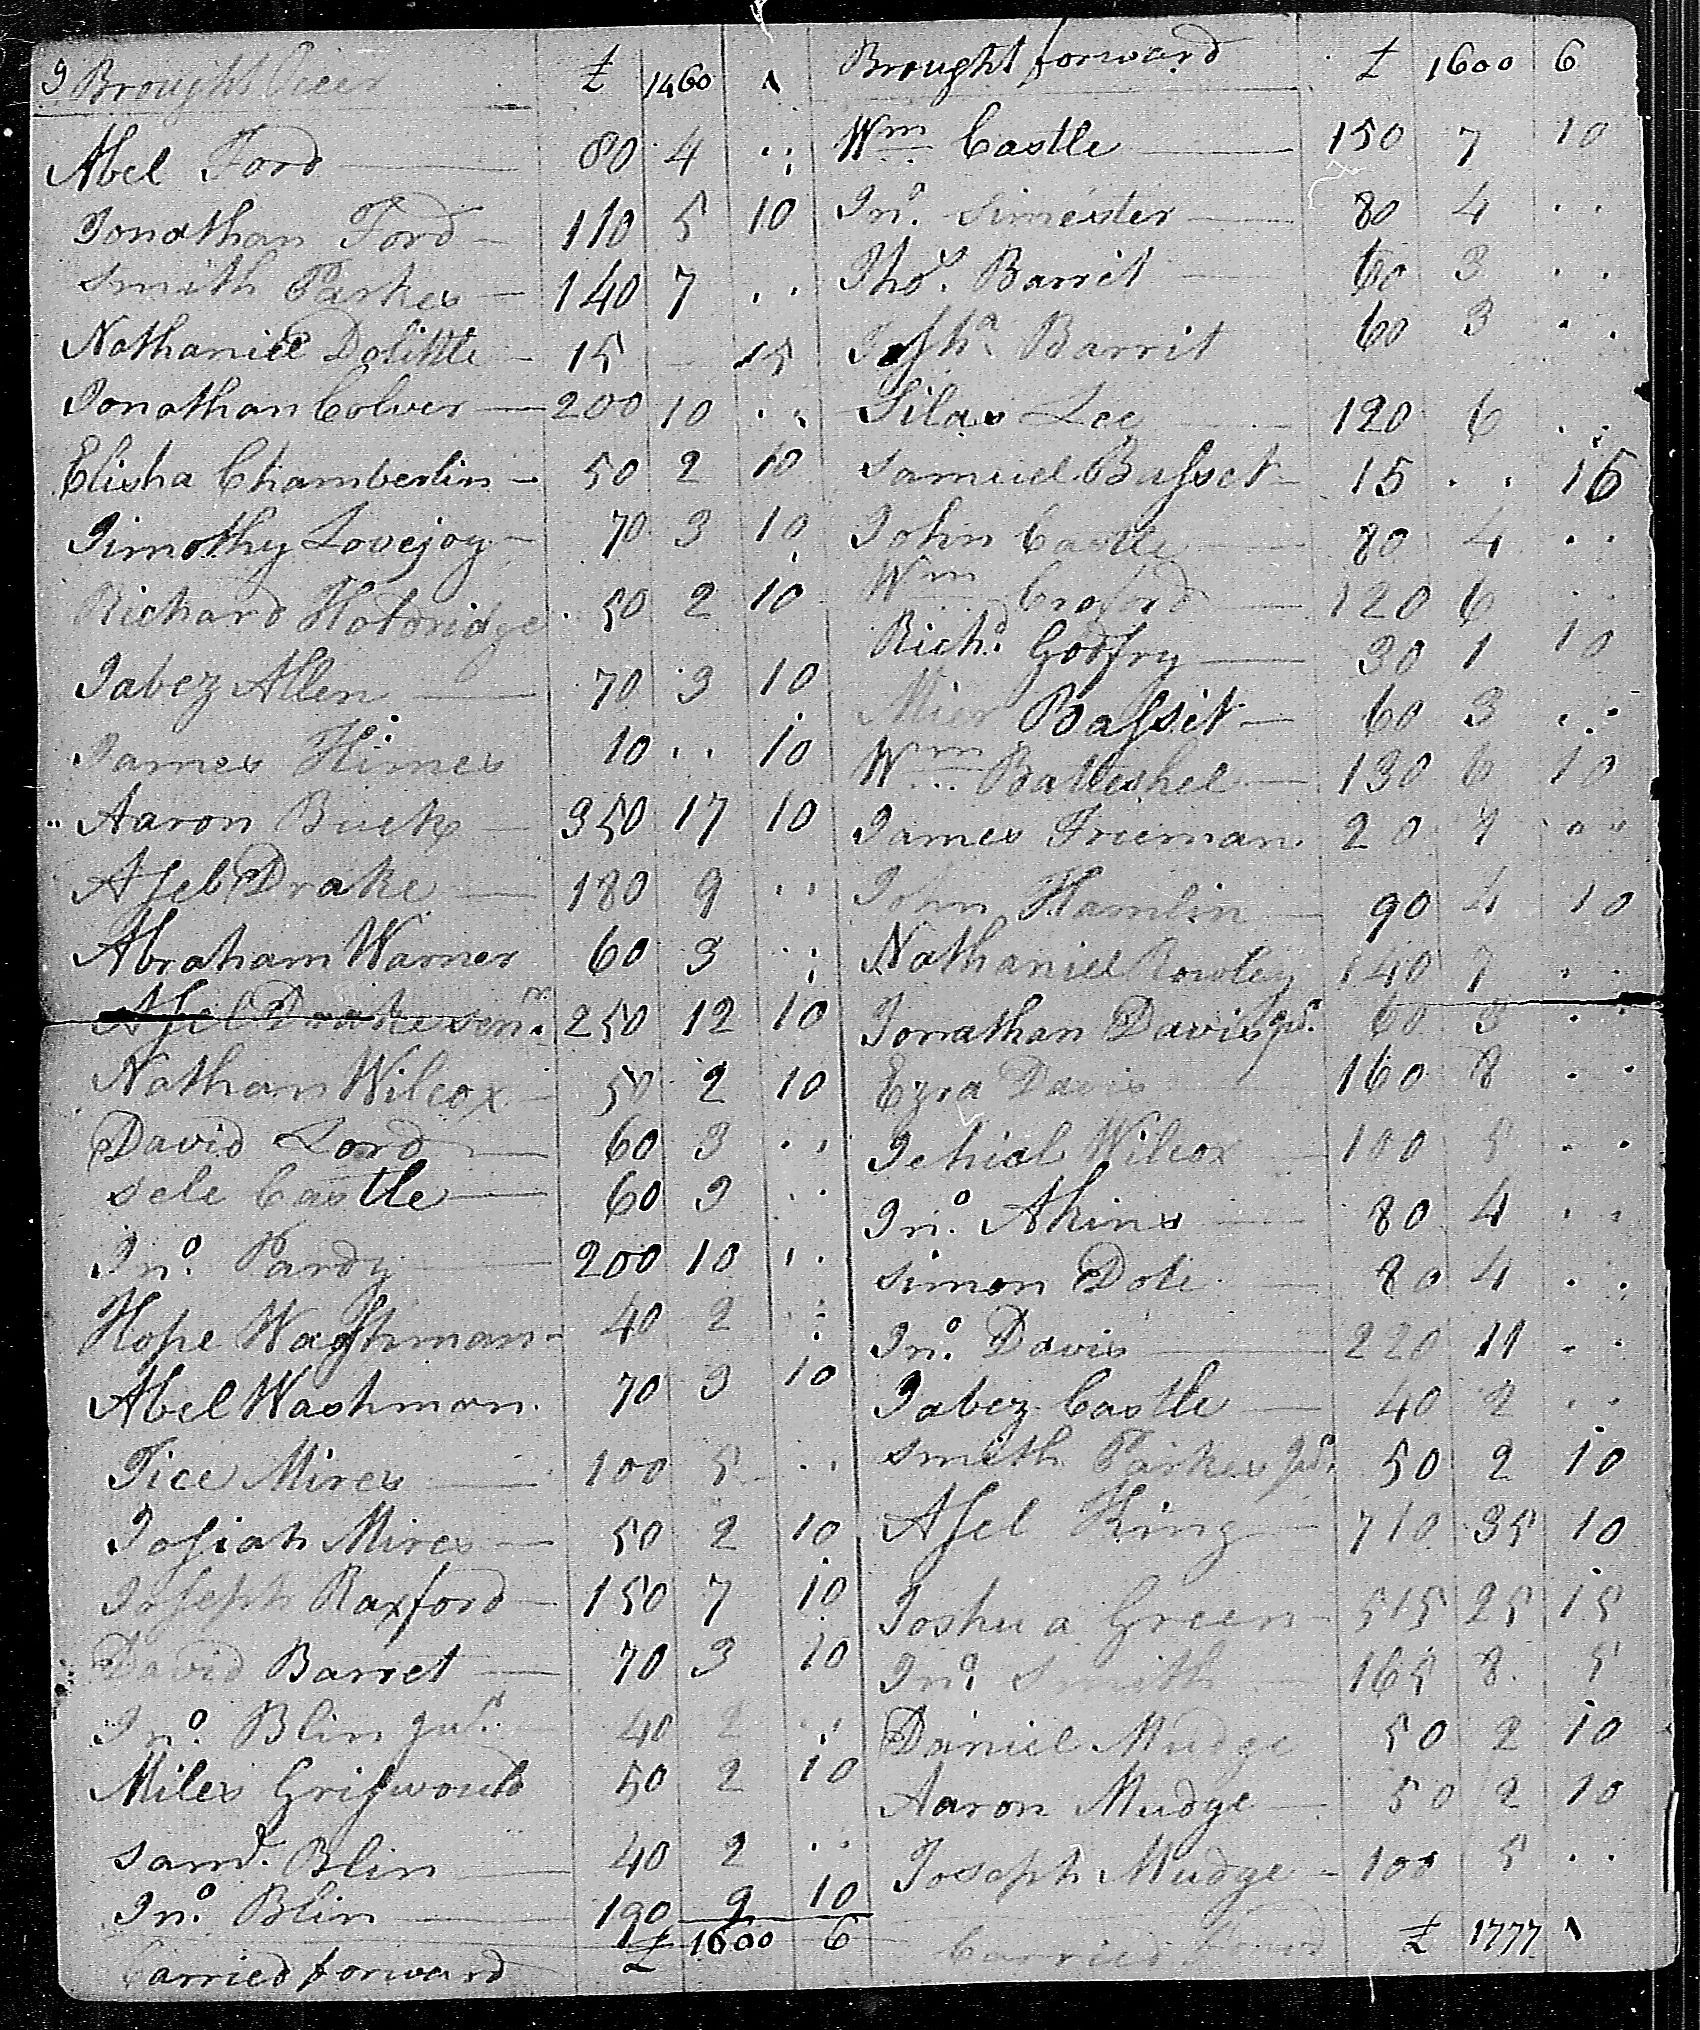 9 Brought Over £ 1460 1
Abel Ford 80 4 ..
Jonathan Ford 110 5 10
Smith Parkes 140 7 ..
Nathaniel Dolittle 15 15
Jonathan Colver 200 10 ..
Elisha Chamberlin 50 2 10
Timothy Lovejoy 70 3 10
Richard Holdridge 50 2 10
Jabez Allen 70 3 10
James Himes 10 .. 10
Aaron Buck 350 17 10
Asel Drake 180 9 ..
Abraham Warner 60 3 ..
Asel Drake senr. 250 12 10
Nathan Wilcox 50 2 10
David Lord 60 3 ..
Sele Castle 60 3 ..
Jno. Pardy 200 10 ..
Hope Washman 40 2 ..
Abel Washman 70 3 10
Tice Mires 100 5 ..
Josiah Mires 50 2 10
Joseph Raxford 150 7 10
David Barret 70 3 10
Jno. Blin Jur. 40 2 ..
Miles Griswould 50 2 10
Saml. Blin 40 2 ..
Jno. Blin 190 9 10
Carried forward £ 1600 6
Brought forward £ 1600 6
Wm. Castle 150 7 10
Jno. Simester 80 4 ..
Thos. Barrit 60 3 ..
Josha. Barrit 60 3 ..
Silas Lee 120 6 ..
Samuel Basset 15 .. 15
John Castle 80 4 ..
Wm. Croford 120 6 ..
Richd. Godfry 30 1 10
Mier Bassit 60 3 ..
Wm. Batteshel 130 6 10
James Frieman 20 1 ..
John Hamlin 90 4 10
Nathaniel Rowley 140 7 ..
Jonathan Davis Jur. 60 3 ..
Ezra Davis 160 8 ..
Jehial Wilcox 100 5 ..
Jno. Akins 80 4 ..
Simon Dole 80 4 ..
Jno. Davis 220 11 ..
Jabez Castle 40 2 ..
Smith Parkes Jur. 50 2 10
Asel King 710 35 10
Joshua Green 515 25 15
Jno. Smith 165 8 5
Daniel Mudge 50 2 10
Aaron Mudge 50 2 10
Joseph Mudge 100 5 ..
Carried Forwd £ 1777 1